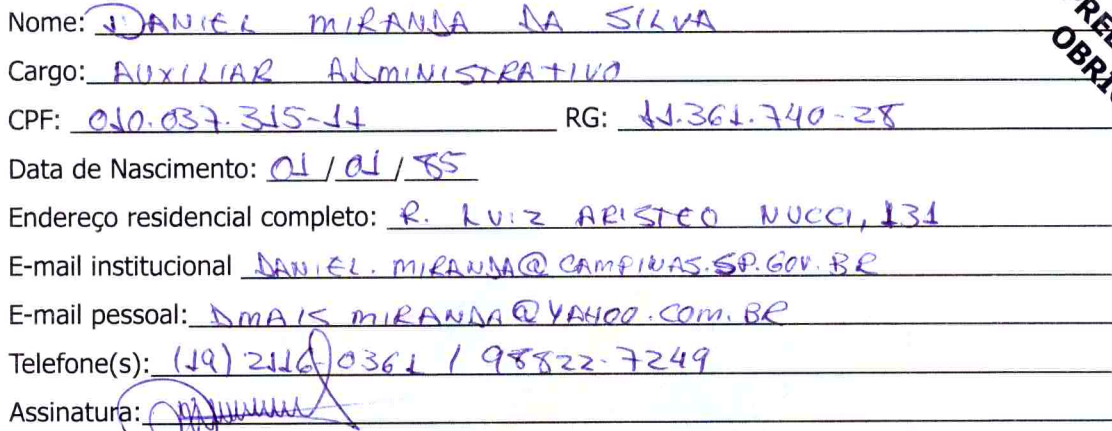 Nome: DANIEL MIRANDA DA SILVA
Cargo: AUXILIAR ADMINISTRATIVO
CPF: 010.037.315-11 RG: 11.361.740-28
Data de Nascimento: 01 / 01 / 85
Endereço residencial completo: R. LUIZ ARISTEO NUCCI, 131
E-mail institucional DANIEL.MIRANDA@CAMPINAS.SP.GOV.BR
E-mail pessoal: DMAISMIRANDA@YAHOO.COM.BR
Telefone(s): (19) 2116-0361 / 98822-7249
Assinatura: